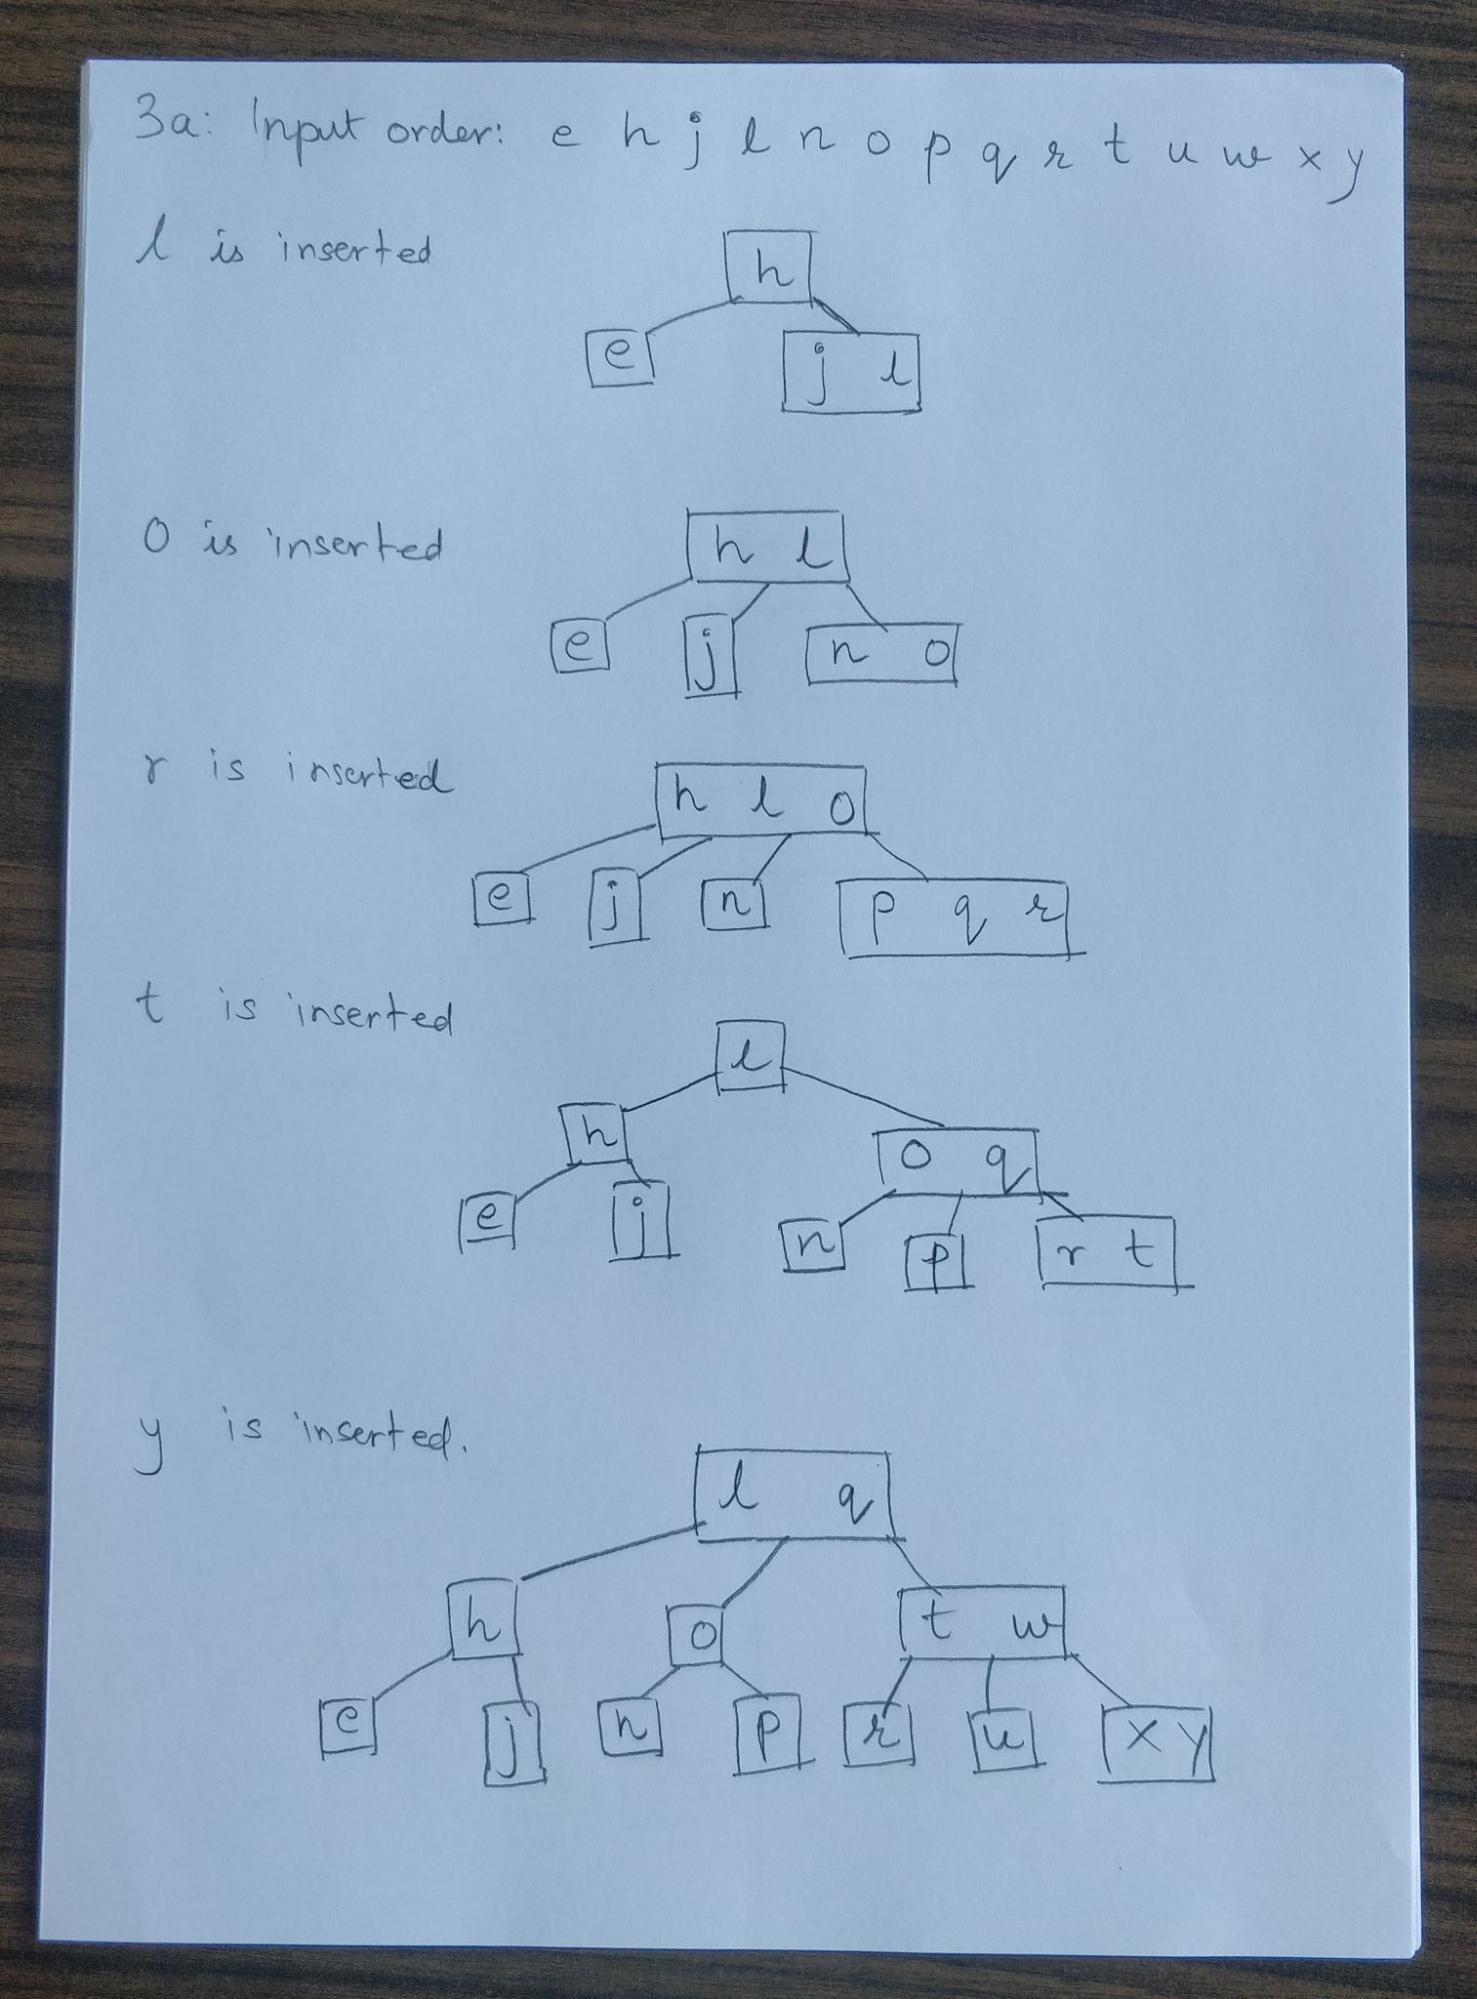 3a: Input order: e h j l n o p q r t u w x y
l is inserted
h
e j l
O is inserted
h l
e j n o
r is inserted
h l o
e j n p q r
t is inserted
l
h o q
e j n p r t
y is inserted.
l q
h o t w
e j n p r u x y